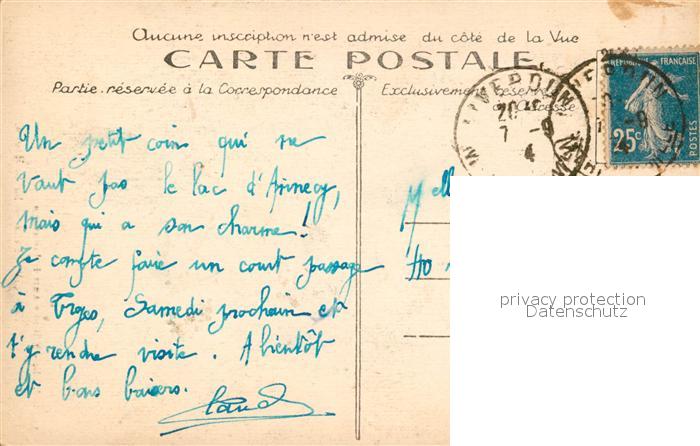 Aucune inscription n'est admise du côté de la Vue
CARTE POSTALE
Partie réservée à la Correspondance
Exclusivement réservé
Adresse
RÉPUBLIQUE FRANÇAISE
25c
POSTES
VERDUN
20
7 - 9
4
Un petit coin qui ne
vaut pas le lac d'Annecy,
mais qui a son charme!
Je compte faire un court passage
à Samedi prochain et
t'y rendre visite. A bientôt
et bons baisers.
Melle
privacy protection
Datenschutz